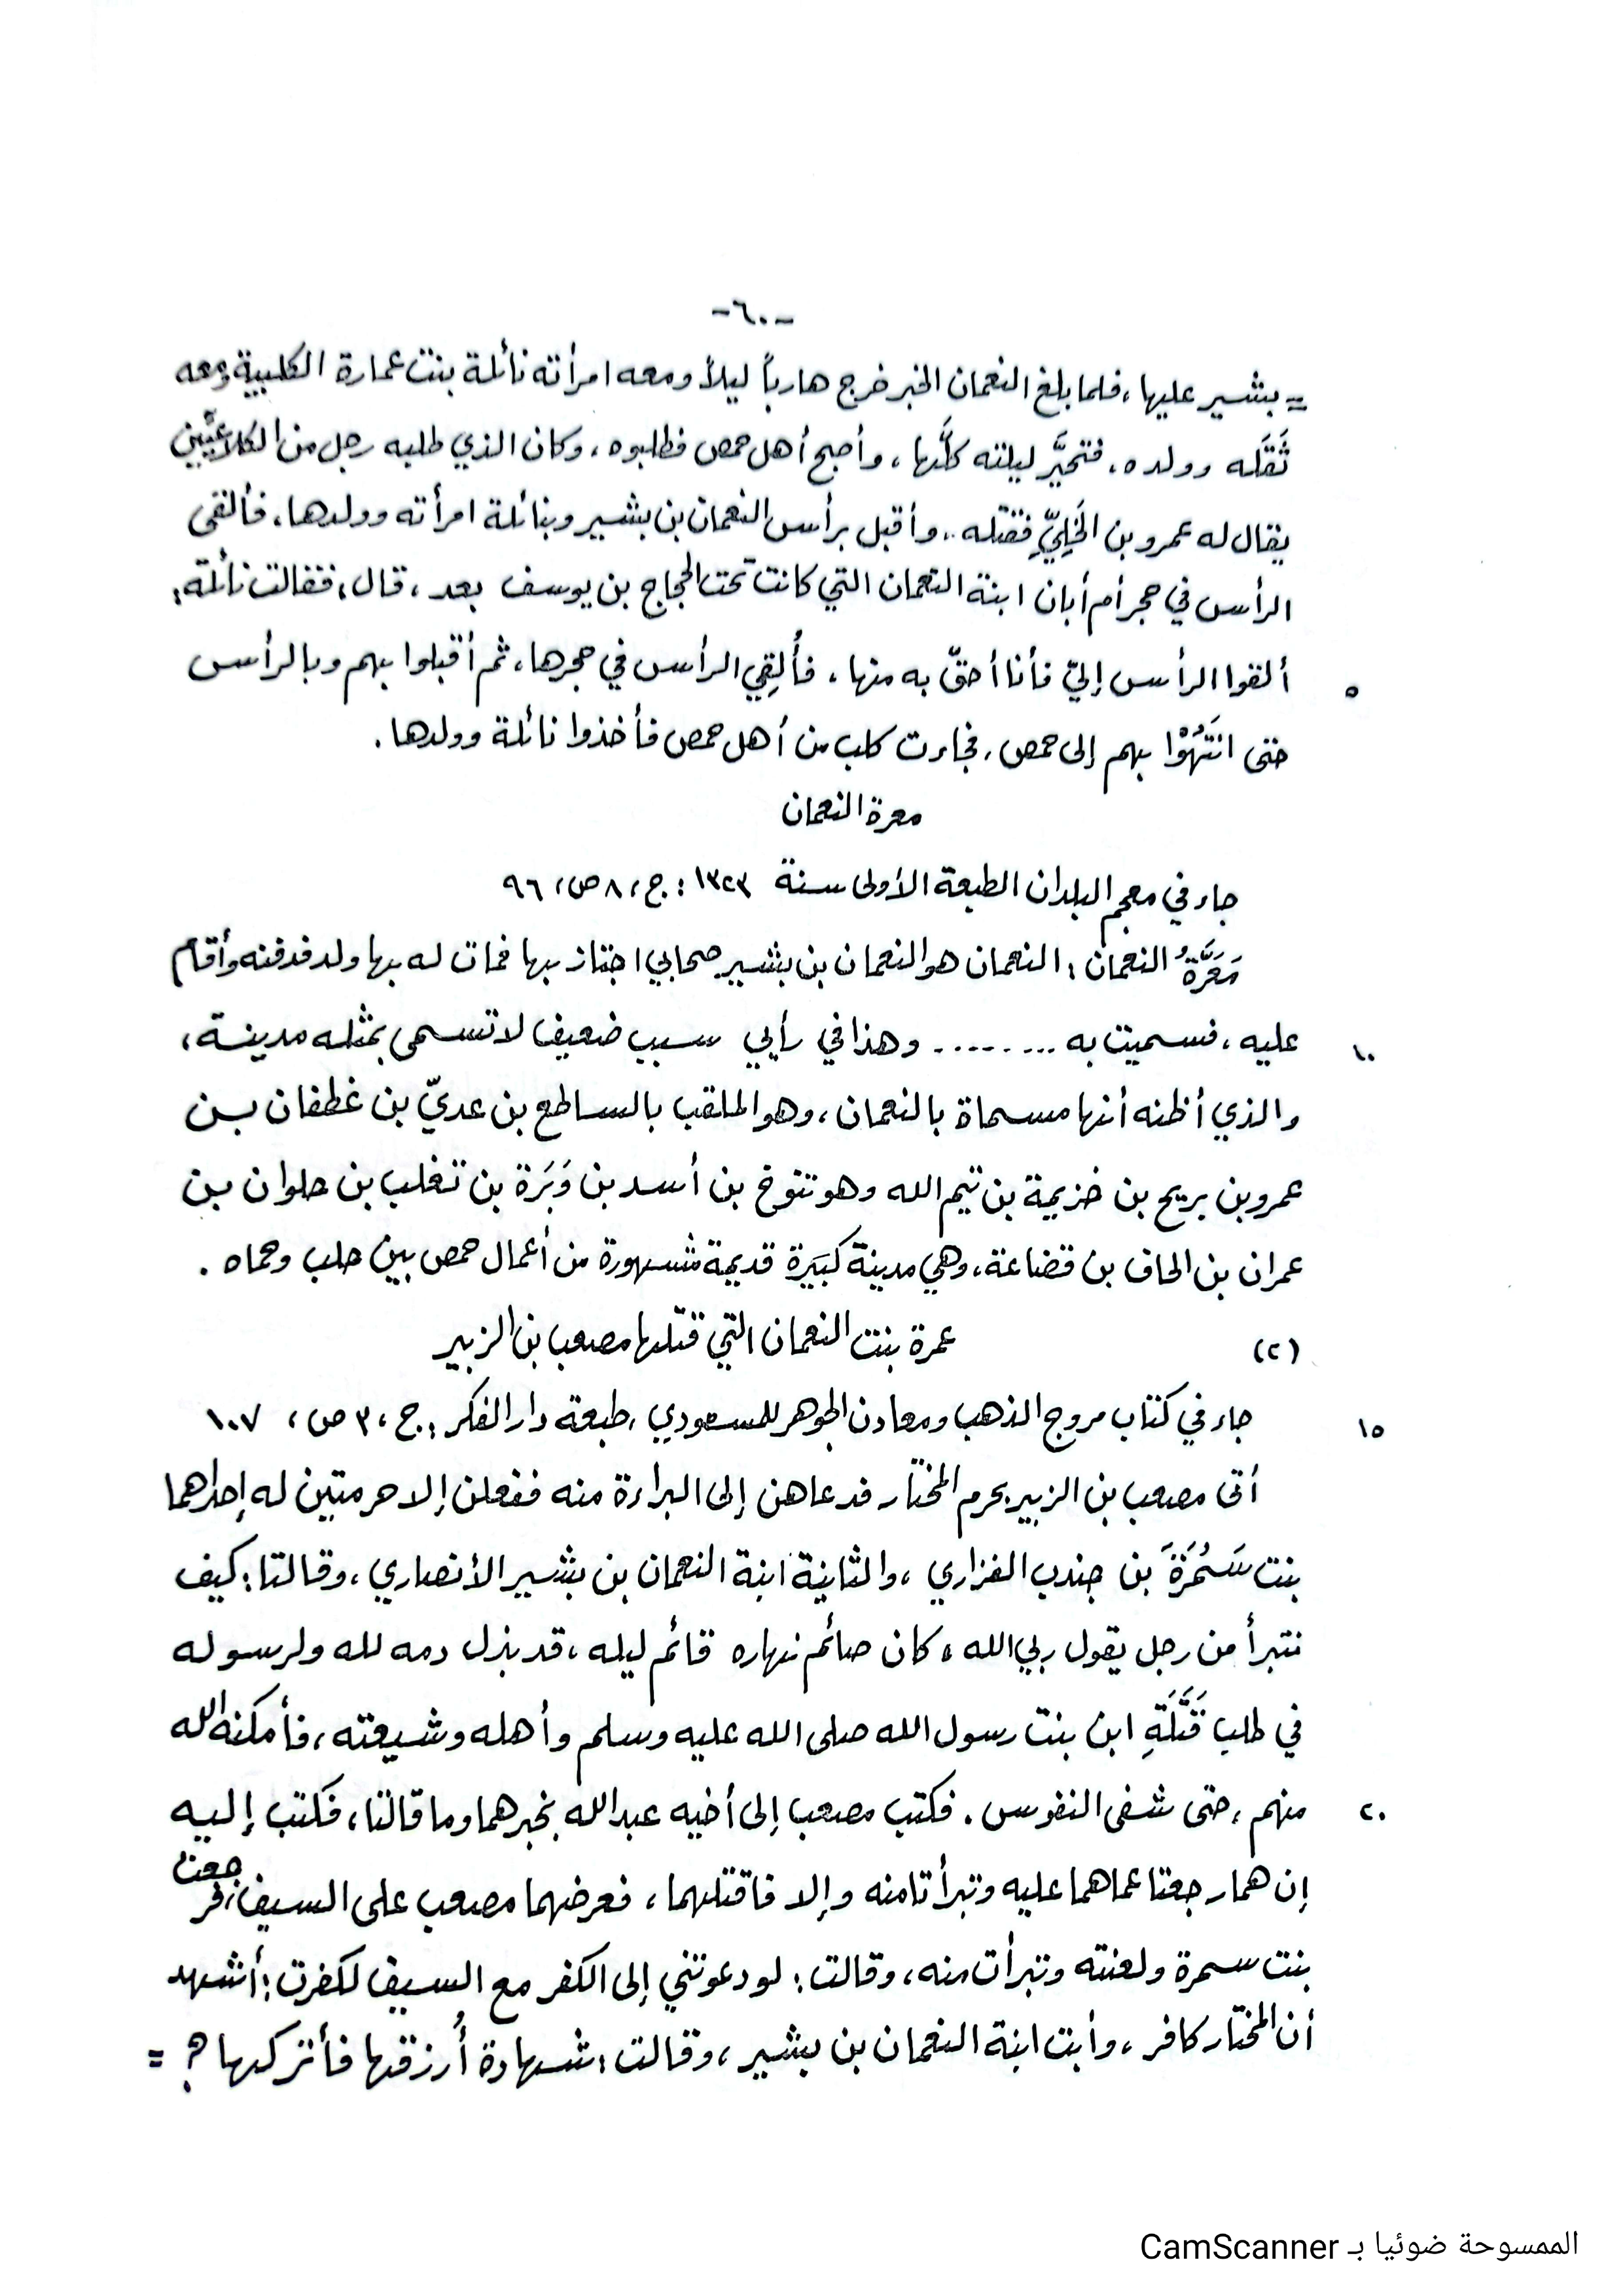 -٦٠-
= بشير عليها، فلما بلغ النعمان الخبر خرج هارباً ليلاً ومعه امرأته نائلة بنت عمارة الكلبية ومعه
ثَقَلَه وولده. فتحيَّر ليلته كلَّها، وأصبح أهل حمص فطلبوه، وكان الذي طلبه رجل من الكلاعيّين
يقال له عمرو بن الخَلِيِّ فقتله، وأقبل برأس النعمان بن بشير وبنائلة امرأته وولدها، فألقى
الرأس في حجر أم أبان ابنة النعمان التي كانت تحت الحجاج بن يوسف بعد، قال: فقالت نائلة:
ألقوا الرأس إليّ فأنا أحقّ به منها، فأُلقِي الرأس في حجرها، ثم أقبلوا بهم وبالرأس
٥
حتى انتَهُوْا بهم إلى حمص، فجاءت كلب من أهل حمص فأخذوا نائلة وولدها.
معرة النعمان
جاء في معجم البلدان الطبعة الأولى سنة ١٣٢٣: ج، ٨ ص، ٩٦
مَعَرَّةُ النعمان: النعمان هو النعمان بن بشير صحابي اجتاز بها فمات له بها ولد فدفنه وأقام
عليه، فسميت به ......... وهذا في رأيي سبب ضعيف لا تسمى بمثله مدينة،
١٠
والذي أظنه أنها مسماة بالنعمان، وهو الملقب بالساطع بن عديّ بن غطفان بن
عمرو بن بريح بن خزيمة بن تيم الله وهو تنوخ بن أسد بن وَبَرَة بن تغلب بن حلوان بن
عمران بن الحاف بن قضاعة، وهي مدينة كبَيرة قديمة مشهورة من أعمال حمص بين حلب وحماه.
(٢) عمرة بنت النعمان التي قتلها مصعب بن الزبير
جاء في كتاب مروج الذهب ومعادن الجوهر للمسعودي، طبعة دار الفكر: ج، ٣ ص، ١٠٧
١٥
أتى مصعب بن الزبير بحرم المختار فدعاهن إلى البراءة منه ففعلن إلا حرمتين له إحداهما
بنت سَمُرَةَ بن جندب الفزاري، والثانية ابنة النعمان بن بشير الأنصاري، وقالتا: كيف
نتبرأ من رجل يقول ربي الله، كان صائم نهاره قائم ليله، قد بذل دمه لله ولرسوله
في طلب قَتَلَةِ ابن بنت رسول الله صلى الله عليه وسلم وأهله وشيعته، فأمكنه الله
منهم، حتى شفى النفوس. فكتب مصعب إلى أخيه عبد الله بخبرهما وما قالتا، فكتب إليه
٢٠
إن هما رجعتا عما هما عليه وتبرأتا منه وإلا فاقتلهما، فعرضهما مصعب على السيف، فرجعت
بنت سمرة ولعنته وتبرأت منه، وقالت: لو دعوتني إلى الكفر مع السيف لكفرت: أشهد
أن المختار كافر، وأبت ابنة النعمان بن بشير، وقالت: شهادة أُرزقها فأتركها؟ =
الممسوحة ضوئيا بـ CamScanner